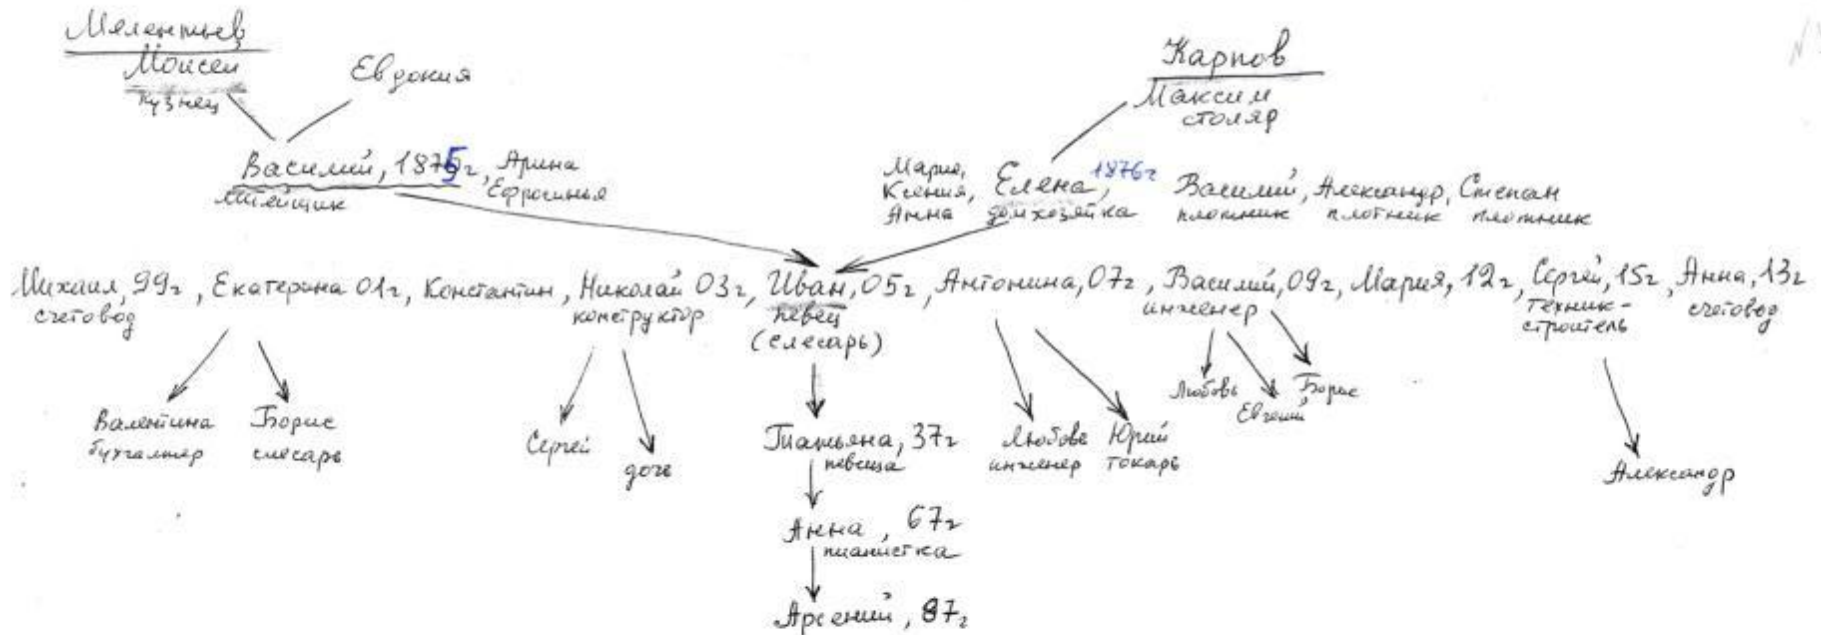 Мелентьев
Моисей
кузнец
Евдокия
Карпов
Максим
столяр
Василий, 1875г, Арина
Ефросинья
литейщик
Мария,
Ксения,
Анна
Елена, 1876г
домхозяйка
Василий, Александр, Степан
плотник плотник плотник
Михаил, 99г, Екатерина 01г, Константин, Николай 03г, Иван, 05г, Антонина, 07г, Василий, 09г, Мария, 12г, Сергей, 15г, Анна, 13г
счетовод
конструктор
певец
(слесарь)
инженер
техник-
строитель
счетовод
Валентина
бухгалтер
Борис
слесарь
Сергей
дочь
Татьяна, 37г
певица
Любовь
инженер
Юрий
токарь
Любовь
Евгений
Борис
Александр
Анна, 67г
пианистка
Арсений, 87г